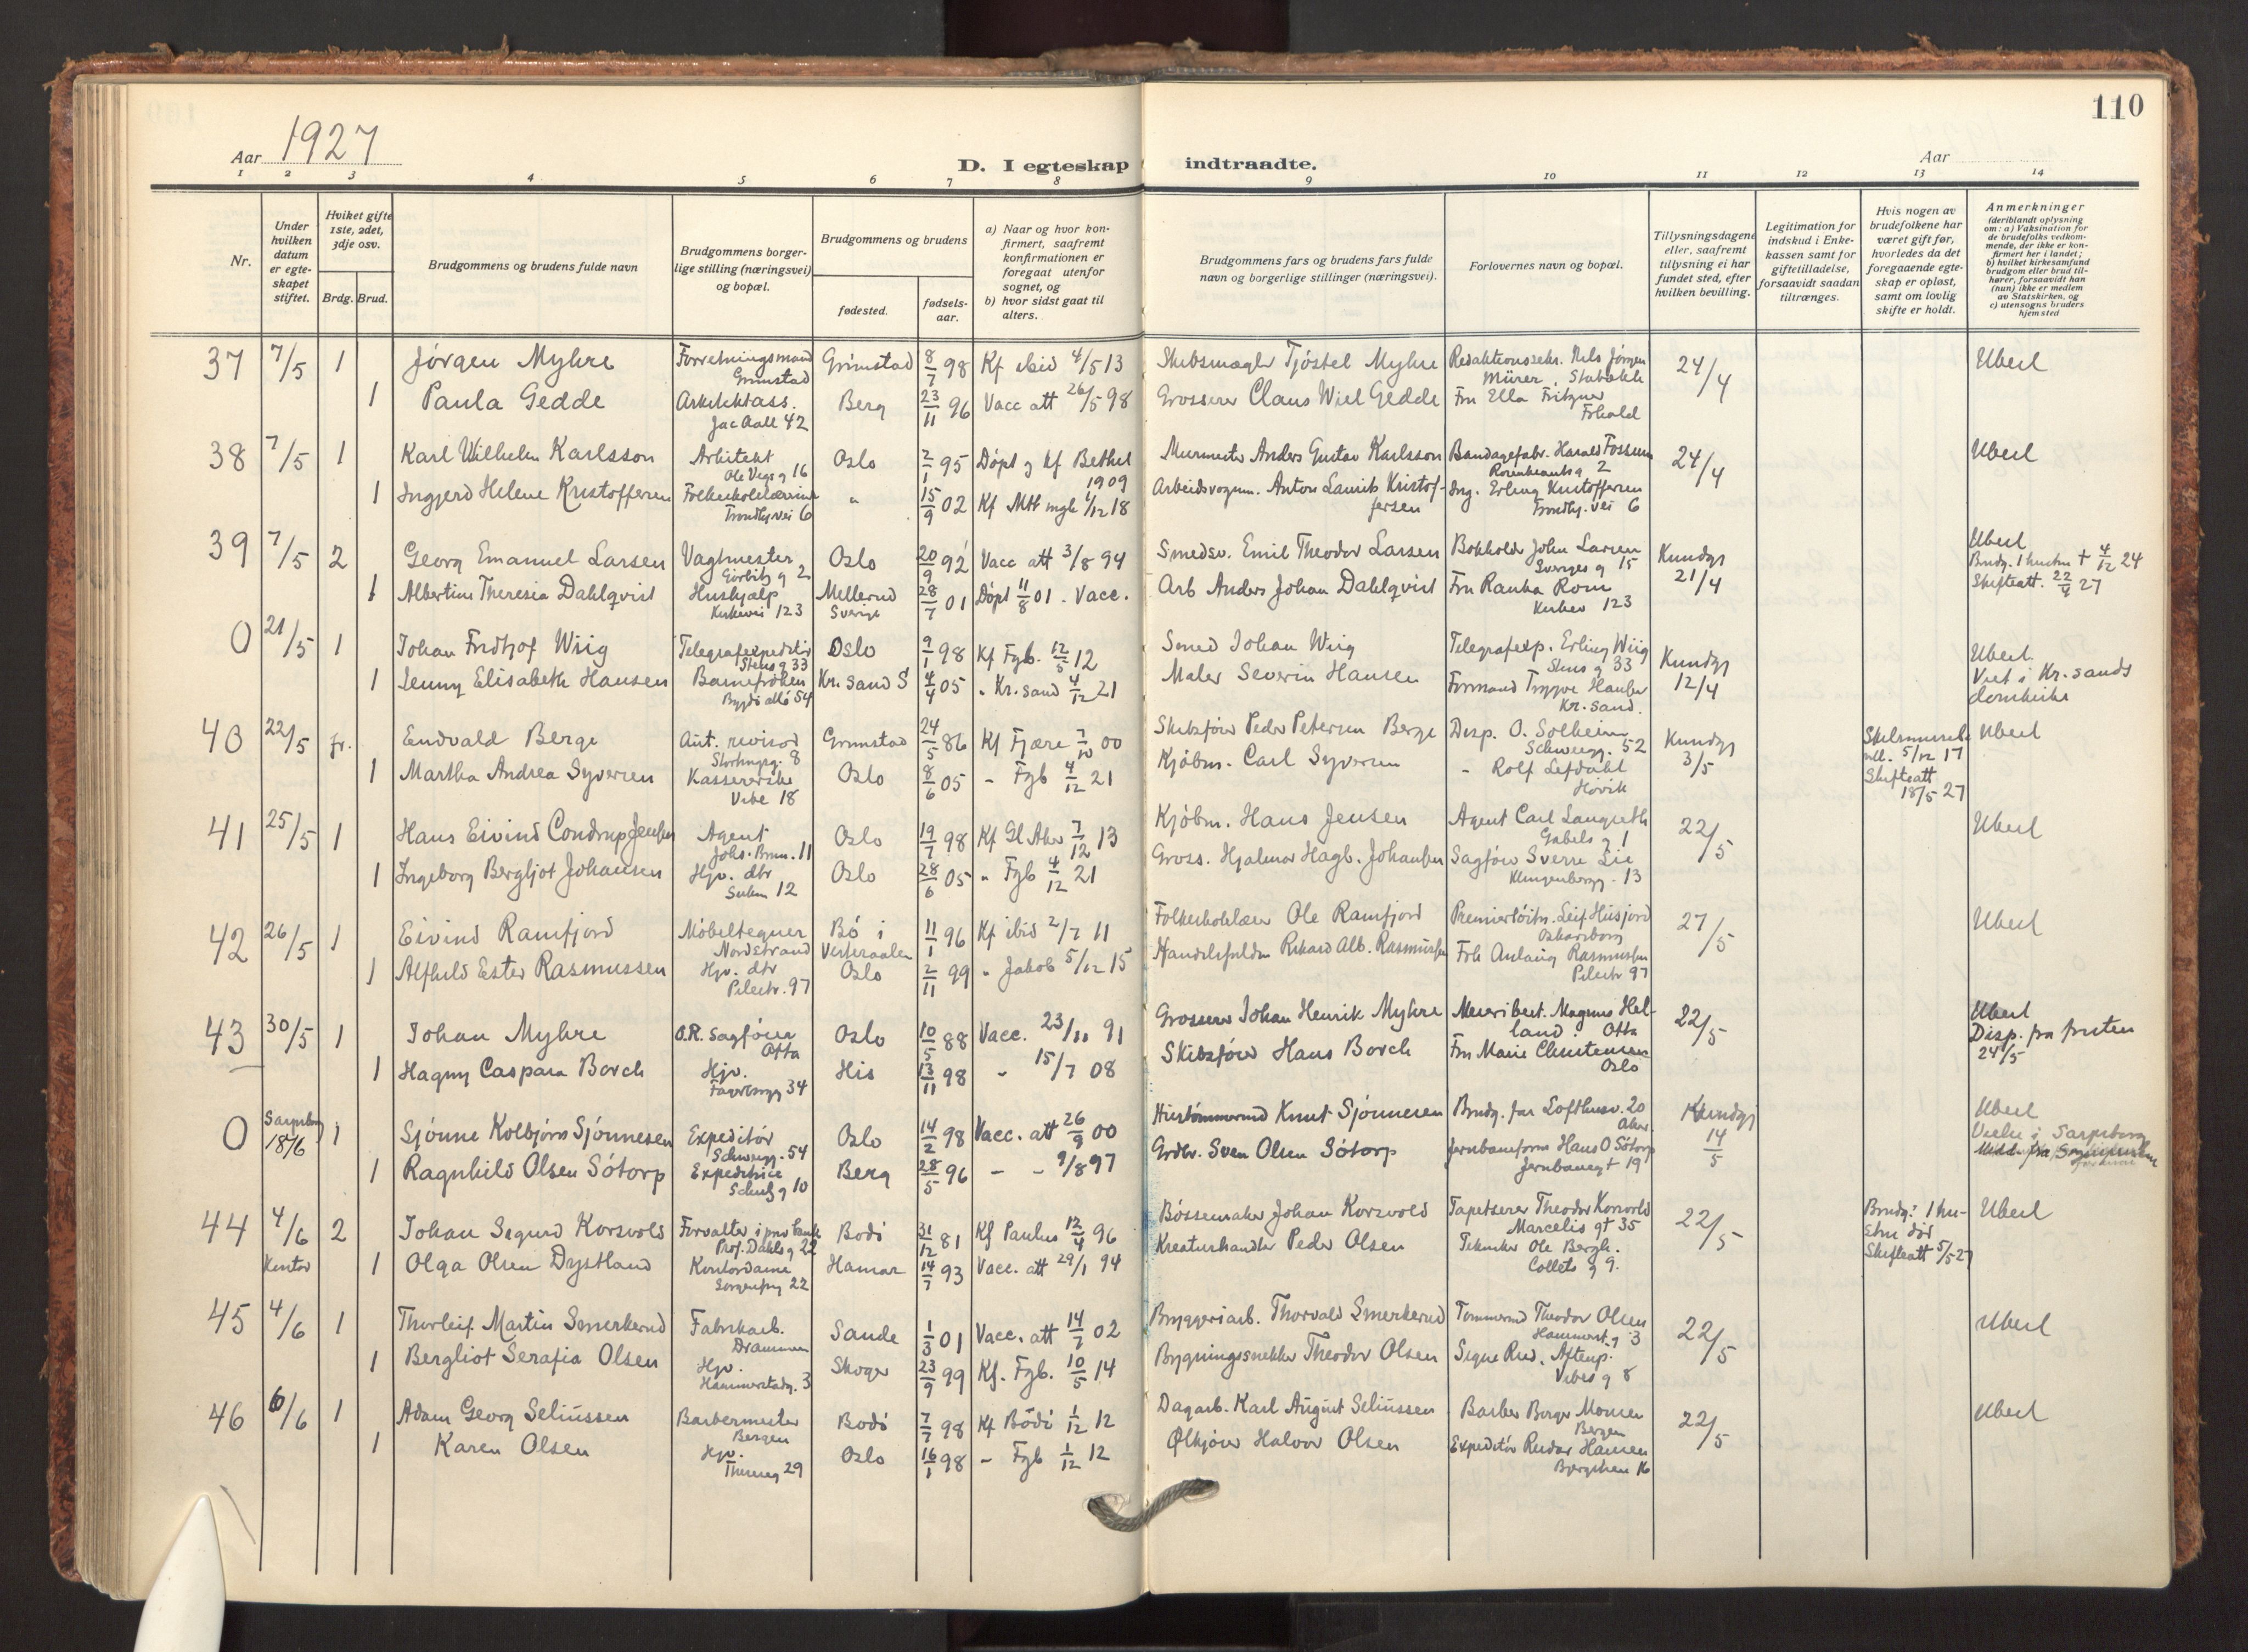 110
Aar 1927
D. I egteskap indtraadte.
Aar
1 2 3 4 5 6 7 8 9 10 11 12 13 14
Nr.
Under hvilken datum er egte-skapet stiftet.
Hviket gifte 1ste, 2det, 3dje osv.
Brdg. Brud.
Brudgommens og brudens fulde navn
Brudgommens borger-lige stilling (næringsvei) og bopæl.
Brudgommens og brudens
fødested.
fødsels-aar.
a) Naar og hvor kon-firmert, saafremt konfirmationen er foregaat utenfor sognet, og
b) hvor sidst gaat til alters.
Brudgommens fars og brudens fars fulde navn og borgerlige stillinger (næringsvei).
Forlovernes navn og bopæl.
Tillysningsdagene eller, saafremt tillysning ei har fundet sted, efter hvilken bevilling.
Legitimation for indskud i Enke-kassen samt for giftetilladelse, forsaavidt saadan tiltrænges.
Hvis nogen av brudefolkene har været gift før, hvorledes da det foregaaende egte-skap er opløst, samt om lovlig skifte er holdt.
Anmerkninger
(deriblandt oplysning om: a) Vaksination for de brudefolks vedkom-mende, der ikke er kon-firmert her i landet; b) hvilket kirkesamfund brudgom eller brud til-hører, forsaavidt han (hun) ikke er medlem av Statskirken, og c) utensogns bruders hjemsted
37 7/5 1 Jörgen Myhre Forretningsmand Grimstad Grimstad 8/7 98 Kf ibid 4/5 13 Skibsmægler Tjöstel Myhre Redaktionssekr. Nils Jørgen Mürer, Stabækk 24/4 Uberl
1 Paula Gedde Arkitektass. Jac Aall 42 Berg 23/11 96 Vacc att 26/5 98 Grosserer Claus Wiel Gedde Fru Ella Fritzner
38 7/5 1 Karl Wilhelm Karlsson Arkitekt Ole Vigs g 16 Oslo 2/1 95 Döpt og Kf Bethel 1909 Murmester Anders Gustav Karlsson Bandagefabr. Harald Fossum Rosenkrantz g 2 24/4 Uberl
1 Ingjerd Helene Kristoffersen Folkeskolelærerinne Trondhj.vei 6 " 15/9 02 Kf Mtt mgh 1/12 18 Arbeidsvogm. Anton Lauritz Kristoffersen Ing. Erling Kristoffersen Trondhj. vei 6
39 7/5 2 Georg Emanuel Larsen Vagtmester Görbitz g 2 Oslo 20/9 92 Vacc att 3/8 94 Smedsv. Emil Theodor Larsen Bokholder John Larsen Sverges g 15 Kundgj 21/4 Uberl Brudg. 1 hustru + 4/12 24 Skifteatt. 22/4 27
1 Albertine Theresia Dahlqvist Hushjælp Kirkevei 123 Mellerud Sverige 28/7 01 Döpt 11/8 01. Vacc. Arb Anders Johan Dahlqvist Fru Rom Kirkev 123
0 21/5 1 Johan Fridtjof Wiig Telegrafexpeditör Stens g 33 Oslo 9/1 98 Kf Fgb. 12/5 12 Smed Johan Wiig Telegrafexp. Erling Wiig Stens g 33 Kundgj 12/4 Uberl. Viet i Kr.sands domkirke
1 Jenny Elisabeth Hansen Barnefröken Bygdö allé 54 Kr. sand S 4/4 05 " Kr. sand 4/12 21 Maler Severin Hansen Formand Trygve Hansen Kr. sand.
40 22/5 fr. Endvald Berge Aut. revisor Stortingsg. 8 Grimstad 24/5 86 Kf Fjære 7/10 00 Skibsförer Peder Petersen Berge Disp. O. Solheim Schweigg. 52 Kundgj 3/5 Skilsmisse 5/12 17 Skifteatt 18/5 27 Uberl
1 Martha Andrea Syversen Kassererske Vibe 18 Oslo 8/6 05 - Fgb 4/12 21 Kjöbm. Carl Syversen - Rolf Lefdahl Hövik
41 25/5 1 Hans Eivind Condrup Jensen Agent Johs. Brun. 11 Oslo 19/7 98 Kf Gl Aker 7/12 13 Kjöbm. Hans Jensen Agent Carl Langseth Gabels g 1 22/5 Uberl
1 Ingeborg Bergljot Johansen Hjv. dtr 12 Oslo 28/6 05 " Fgb 4/12 21 Gross. Hjalmar Hagb. Johansen Sagförer Sverre Lie Klingenbergg. 13
42 26/5 1 Eivind Ramfjord Möbeltegner Nordstrand Bö i Vesteraalen 11/1 96 Kf ibid 2/7 11 Folkeskolelærer Ole Ramfjord Premierlöitn. Leif Husjord Oskarsborg 27/5 Uberl
1 Alfhild Ester Rasmussen Hjv. dtr Pilestr. 97 Oslo 2/11 99 " Jakob 5/12 15 Handelsfuldm Rikard Alb. Rasmussen Frk Aslaug Rasmussen Pilestr 97
43 30/5 1 Johan Myhre O.R. Sagförer Otta Oslo 10/5 88 Vacc. 23/11 91 Grosserer Johan Henrik Myhre Meieribest. Magnus Helland. Otta 22/5 Uberl Disp. fra fristen 24/5
1 Hagny Caspara Borch Hjv. Fagerborgg 34 His 13/11 98 - 15/7 08 Skibsförer Hans Borch Fru Marie Christensen Oslo
0 Sarpsborg 18/6 1 Sjönne Kolbjörn Sjönnesen Expeditör Schweigg. 54 Oslo 14/2 98 Vacc. att 26/9 00 Hustömmermd Knut Sjönnesen Brudg. far Lofthusv. 20 Aker Kundgj 14/5 Uberl Vielse i Sarpsborg
1 Ragnhild Olsen Sötorp Expeditrice Schulz g 10 Berg 28/5 96 - - 9/8 97 Grdbr. Sven Olsen Sötorp Jernbaneform Hans O Sötorp Jernbanegt 19
44 4/6 Kontor 2 Johan Sigurd Korsvold Forvalter i priv bank Prof. Dahls g 22 Bodö 31/12 81 Kf Paulus 12/4 96 Bössemaker Johan Korsvold Tapetserer Theodor Korsvold Marcelis gt 35 22/5 Brudg: 1 hustru död Skifteatt 5/5 27 Uberl
1 Olga Olsen Dystland Kontordame Sorgenfrig 22 Hamar 14/7 93 Vacc. att 29/1 94 Kreaturhandler Peder Olsen Tekniker Ole Bergh. Collets g 9.
45 4/6 1 Thorleif Martin Smerkerud Fabrikarb. Drammen Sande 1/3 01 Vacc. att 14/7 02 Bryggeriarb. Thorvald Smerkerud Tömmermd Theodor Olsen Hammerst. g 3 22/5 Uberl
1 Bergliot Serafia Olsen Hjv. Hammerstadg. 3 Skoger 23/9 99 Kf. Fgb. 10/5 14 Bygningssnekker Theodor Olsen Signe Rud, Aftenp. Vibes g 8
46 6/6 1 Adam Georg Seliussen Barbermester Bergen Bodö 7/7 98 Kf Bödö 1/12 12 Dagarb. Karl August Seliussen Barber Borger Monsen Bergen 22/5 Uberl
1 Karen Olsen Hjv. Thereseg 29 Oslo 16/1 98 - Fgb 1/12 12 Ølkjörer Halvor Olsen Expeditör Reidar Hansen 16